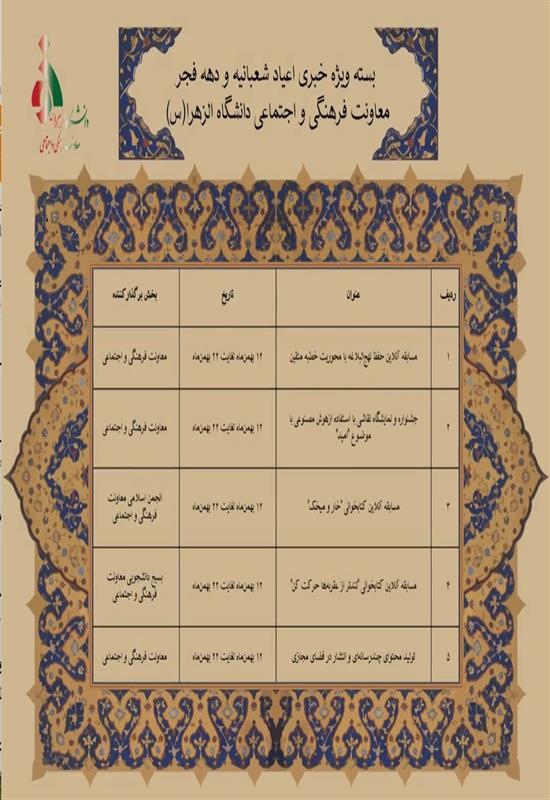 بسته ویژه خبری اعیاد شعبانیه و دهه فجر
معاونت فرهنگی و اجتماعی دانشگاه الزهرا(س)
ردیف عنوان تاریخ بخش برگذارکننده
۱ مسابقه آنلاین حفظ نهج‌البلاغه با محوریت خطبه متقین ۱۲ بهمن‌ماه لغایت ۲۲ بهمن‌ماه معاونت فرهنگی و اجتماعی
۲ جشنواره و نمایشگاه نقاشی با استفاده ازهوش مصنوعی با
موضوع "امید" ۱۲ بهمن‌ماه لغایت ۲۲ بهمن‌ماه معاونت فرهنگی و اجتماعی
۳ مسابقه آنلاین کتابخوانی "خار و میخک" ۱۲ بهمن‌ماه لغایت ۲۲ بهمن‌ماه انجمن اسلامی معاونت
فرهنگی و اجتماعی
۴ مسابقه آنلاین کتابخوانی "تندتر از عقربه‌ها حرکت کن" ۱۲ بهمن‌ماه لغایت ۲۲ بهمن‌ماه بسیج دانشجویی معاونت
فرهنگی و اجتماعی
۵ تولید محتوای چندرسانه‌ای و انتشار در فضای مجازی ۱۲ بهمن‌ماه لغایت ۲۲ بهمن‌ماه معاونت فرهنگی و اجتماعی